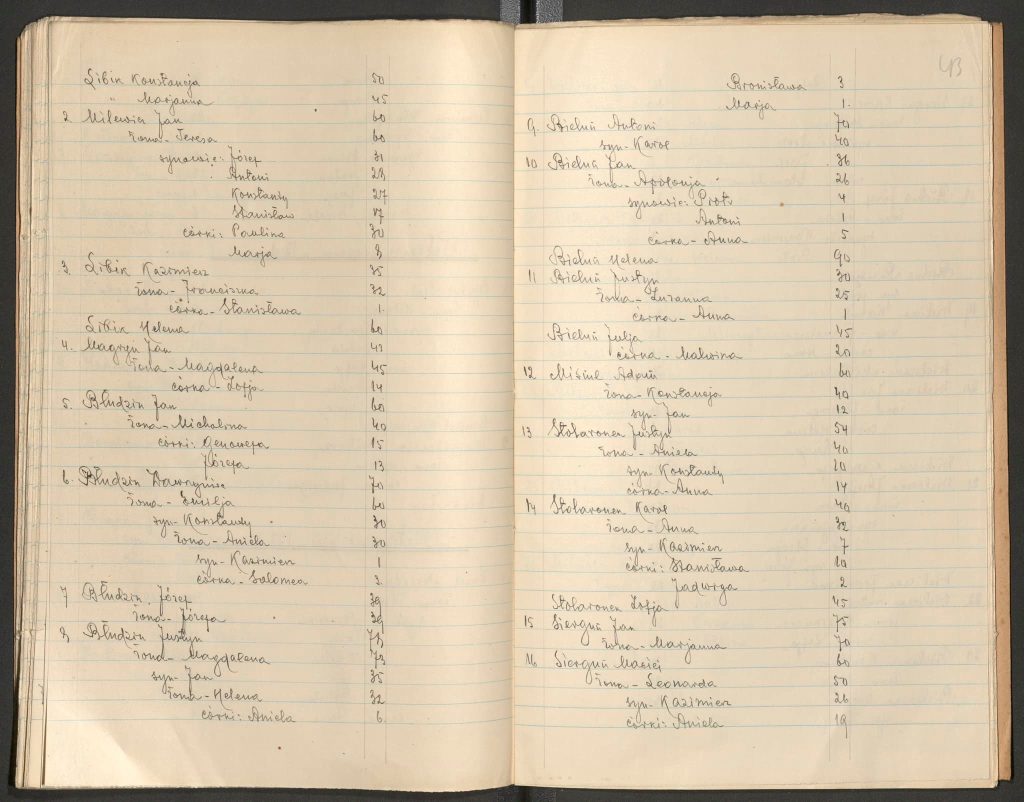 Libik Konstancja 50
" Marjanna 45
2 Milewicz Jan 60
żona - Teresa 60
synowie: Józef 31
Antoni 28
Konstanty 27
Stanisław 17
córki: Paulina 30
Marja 8
3. Libik Kazimierz 35
żona - Franciszka 32
córka - Stanisława 1.
Libik Helena 60
4. Magryń Jan 43
żona - Magdalena 45
córka - Zofja 14
5. Błudzin Jan 60
żona - Michalina 40
córki: Genowefa 15
Józefa 13
6. Błudzin 70
żona - Emilja 60
syn - Konstanty 30
żona - Aniela 30
syn - Kazimierz 1
córka - Salomea 3
7 Błudzin Józef
żona - Józefa
8 Błudzin Justyn 73
żona - Magdalena 73
syn - Jan 35
żona - Helena 32
córki: Aniela 6
43
Bronisława 3
Marja 1.
9. Antoni 70
syn - Karol 40
10 Jan 36
żona - Apolonja 26
synowie: Piotr 4
Antoni 1
córka - Anna 5
Helena 90
11 Justyn 30
żona - Zuzanna 25
córka - Anna 1
Julja 45
córka - Malwina 20
12 Adam 60
żona - Konstancja 40
syn - Jan 12
13 Stolaronek Justyn 54
żona - Aniela 40
syn - Konstanty 20
córka - Anna 14
14 Stolaronek Karol 40
żona - Anna 32
syn - Kazimierz 7
córki: Stanisława 10
Jadwiga 2
Stolaronek Zofja 45
15 Jan 75
żona - Marjanna 70
16 Maciej 60
żona - Leonarda 50
syn - Kazimierz 26
córki: Aniela 19